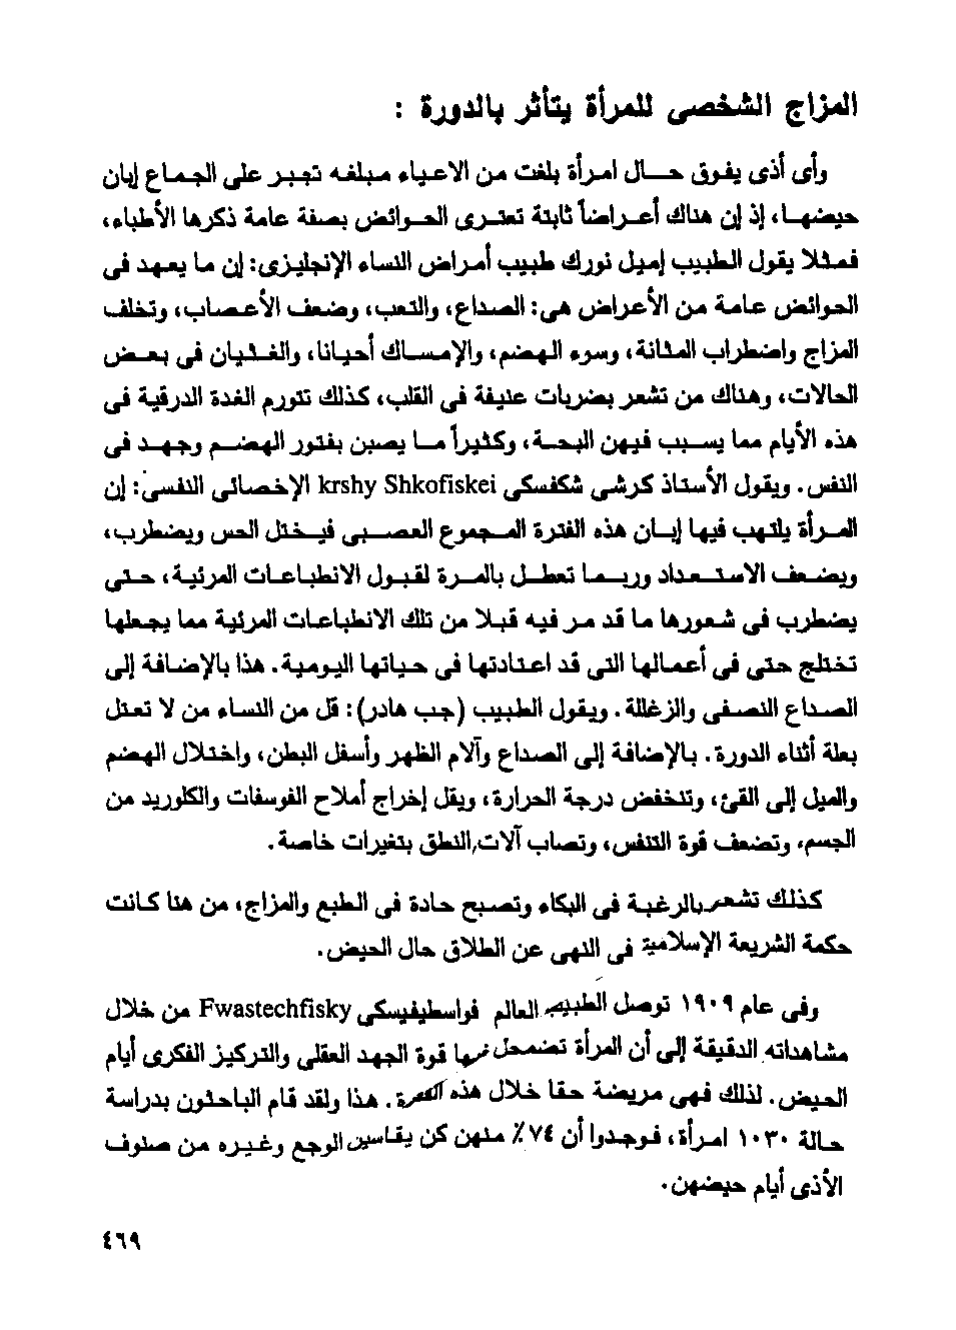 المزاج الشخصى للمرأة يتأثر بالدورة :
وأى أذى يفوق حال امرأة بلغت من الاعياء مبلغه تجبر على الجماع إبان
حيضها، إذ إن هناك أعراضاً ثابتة تعترى الحوائض بصفة عامة ذكرها الأطباء،
فمثلا يقول الطبيب إميل نورك طبيب أمراض النساء الإنجليزى: إن ما يعهد فى
الحوائض عامة من الأعراض هى: الصداع، والتعب، وضعف الأعصاب، وتخلف
المزاج واضطراب المثانة، وسوء الهضم، والإمساك أحيانا، والغثيان فى بعض
الحالات، وهناك من تشعر بضربات عنيفة فى القلب، كذلك تتورم الغدة الدرقية فى
هذه الأيام مما يسبب فيهن البحة، وكثيراً ما يصبن بفتور الهضم وجهد فى
النفس. ويقول الأستاذ كرشى شكفسكى krshy Shkofiskei الإخصائى النفسى: إن
المرأة يلتهب فيها إبان هذه الفترة المجموع العصبى فيختل الحس ويضطرب،
ويضعف الاستعداد وربما تعطل بالمرة لقبول الانطباعات المرئية، حتى
يضطرب فى شعورها ما قد مر فيه قبلا من تلك الانطباعات المرئية مما يجعلها
تختلج حتى فى أعمالها التى قد اعتادتها فى حياتها اليومية. هذا بالإضافة إلى
الصداع النصفى والزغللة. ويقول الطبيب (جب هادر): قل من النساء من لا تعتل
بعلة أثناء الدورة. بالإضافة إلى الصداع وآلام الظهر وأسفل البطن، واختلال الهضم
والميل إلى القئ، وتنخفض درجة الحرارة، ويقل إخراج أملاح الفوسفات والكلوريد من
الجسم، وتضعف قوة التنفس، وتصاب آلات النطق بتغيرات خاصة.
كذلك تشعر بالرغبة فى البكاء وتصبح حادة فى الطبع والمزاج، من هنا كانت
حكمة الشريعة الإسلامية فى النهى عن الطلاق حال الحيض.
وفى عام ١٩٠٩ توصل الطبيب العالم فواسطيفيسكى Fwastechfisky من خلال
مشاهداته الدقيقة إلى أن المرأة تضمحل فيها قوة الجهد العقلى والتركيز الفكرى أيام
الحيض. لذلك فهى مريضة حقا خلال هذه الفترة. هذا ولقد قام الباحثون بدراسة
حالة ١٠٣٠ امرأة، فوجدوا أن ٧٤٪ منهن كن يقاسين الوجع وغيره من صنوف
الأذى أيام حيضهن.
٤٦٩